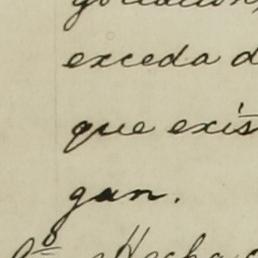 exceda d
que exis
gan.
Hecha